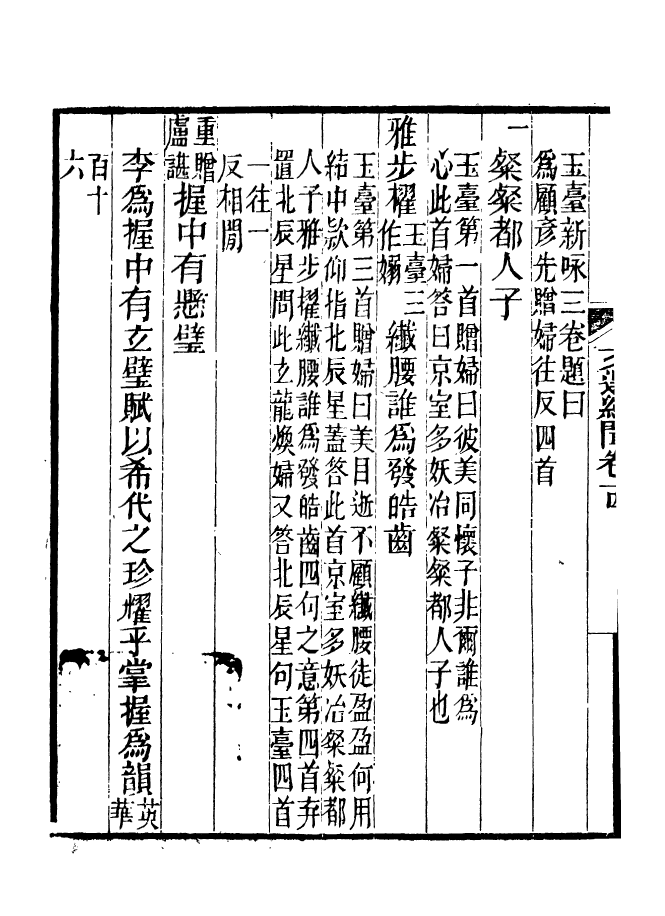 玉臺新咏三卷題曰
為顧彥先贈婦往反四首
一粲粲都人子
玉臺第一首贈婦曰彼美同懷子非爾誰為
心此首婦答曰京室多妖冶粲粲都人子也
雅步櫂玉臺三作嫋纖腰誰為發皓齒
玉臺第三首贈婦曰美目逝不顧纖腰徒盈盈何用
結中款仰指北辰星蓋答此首京室多妖冶粲粲都
人子雅步擢纖腰誰為發皓齒四句之意第四首弃
置北辰星問此玄龍煥婦又答北辰星句玉臺四首
一往一
反相間
重贈盧諶握中有懸璧
李為握中有玄璧賦以希代之珍耀乎掌握為韻英華
百十
六
文選紀聞卷十四